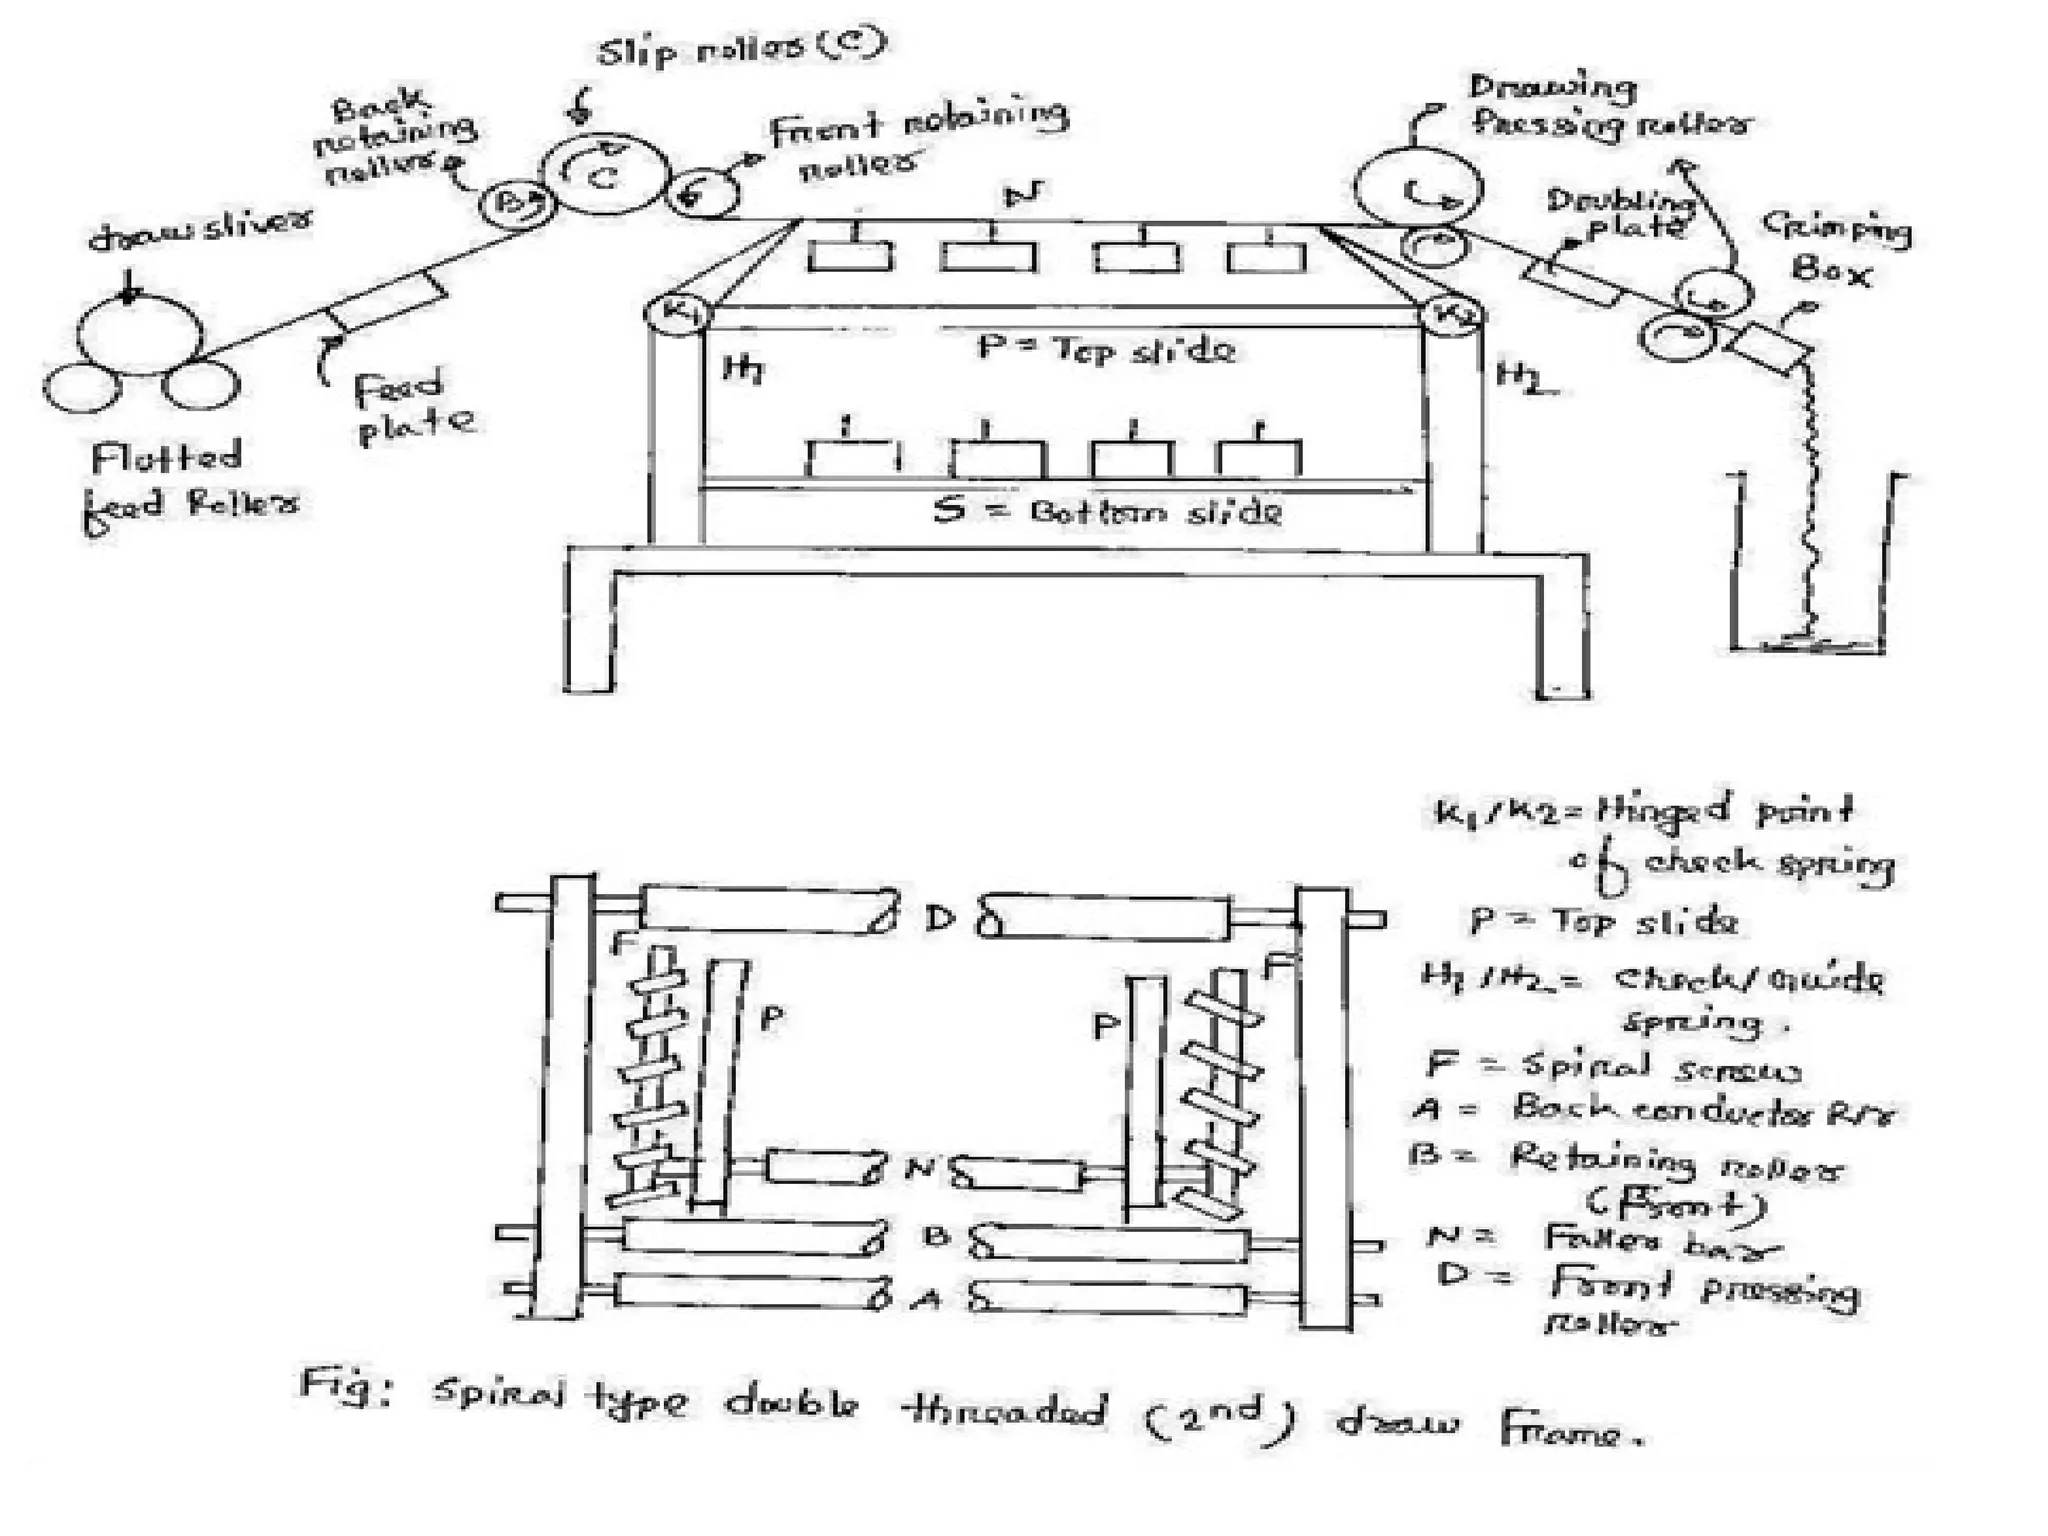 Slip roller (C)
Back
retaining
roller
Front retaining
roller
Drawing
Pressing roller
draw sliver
N
Doubling
plate
Crimping
Box
B
C
K1
K2
P = Top slide
H1
H2
Feed
plate
Flutted
feed Roller
S = Bottom slide
K1/K2 = Hinged point
of check spring
P = Top slide
H1/H2 = check/Guide
spring.
F = spiral screw
A = Back conductor R/r
B = Retaining roller
(Front)
N = Faller bar
D = Front pressing
roller
D
F
F
P
P
N
B
A
Fig: spiral type double threaded (2nd) draw Frame.